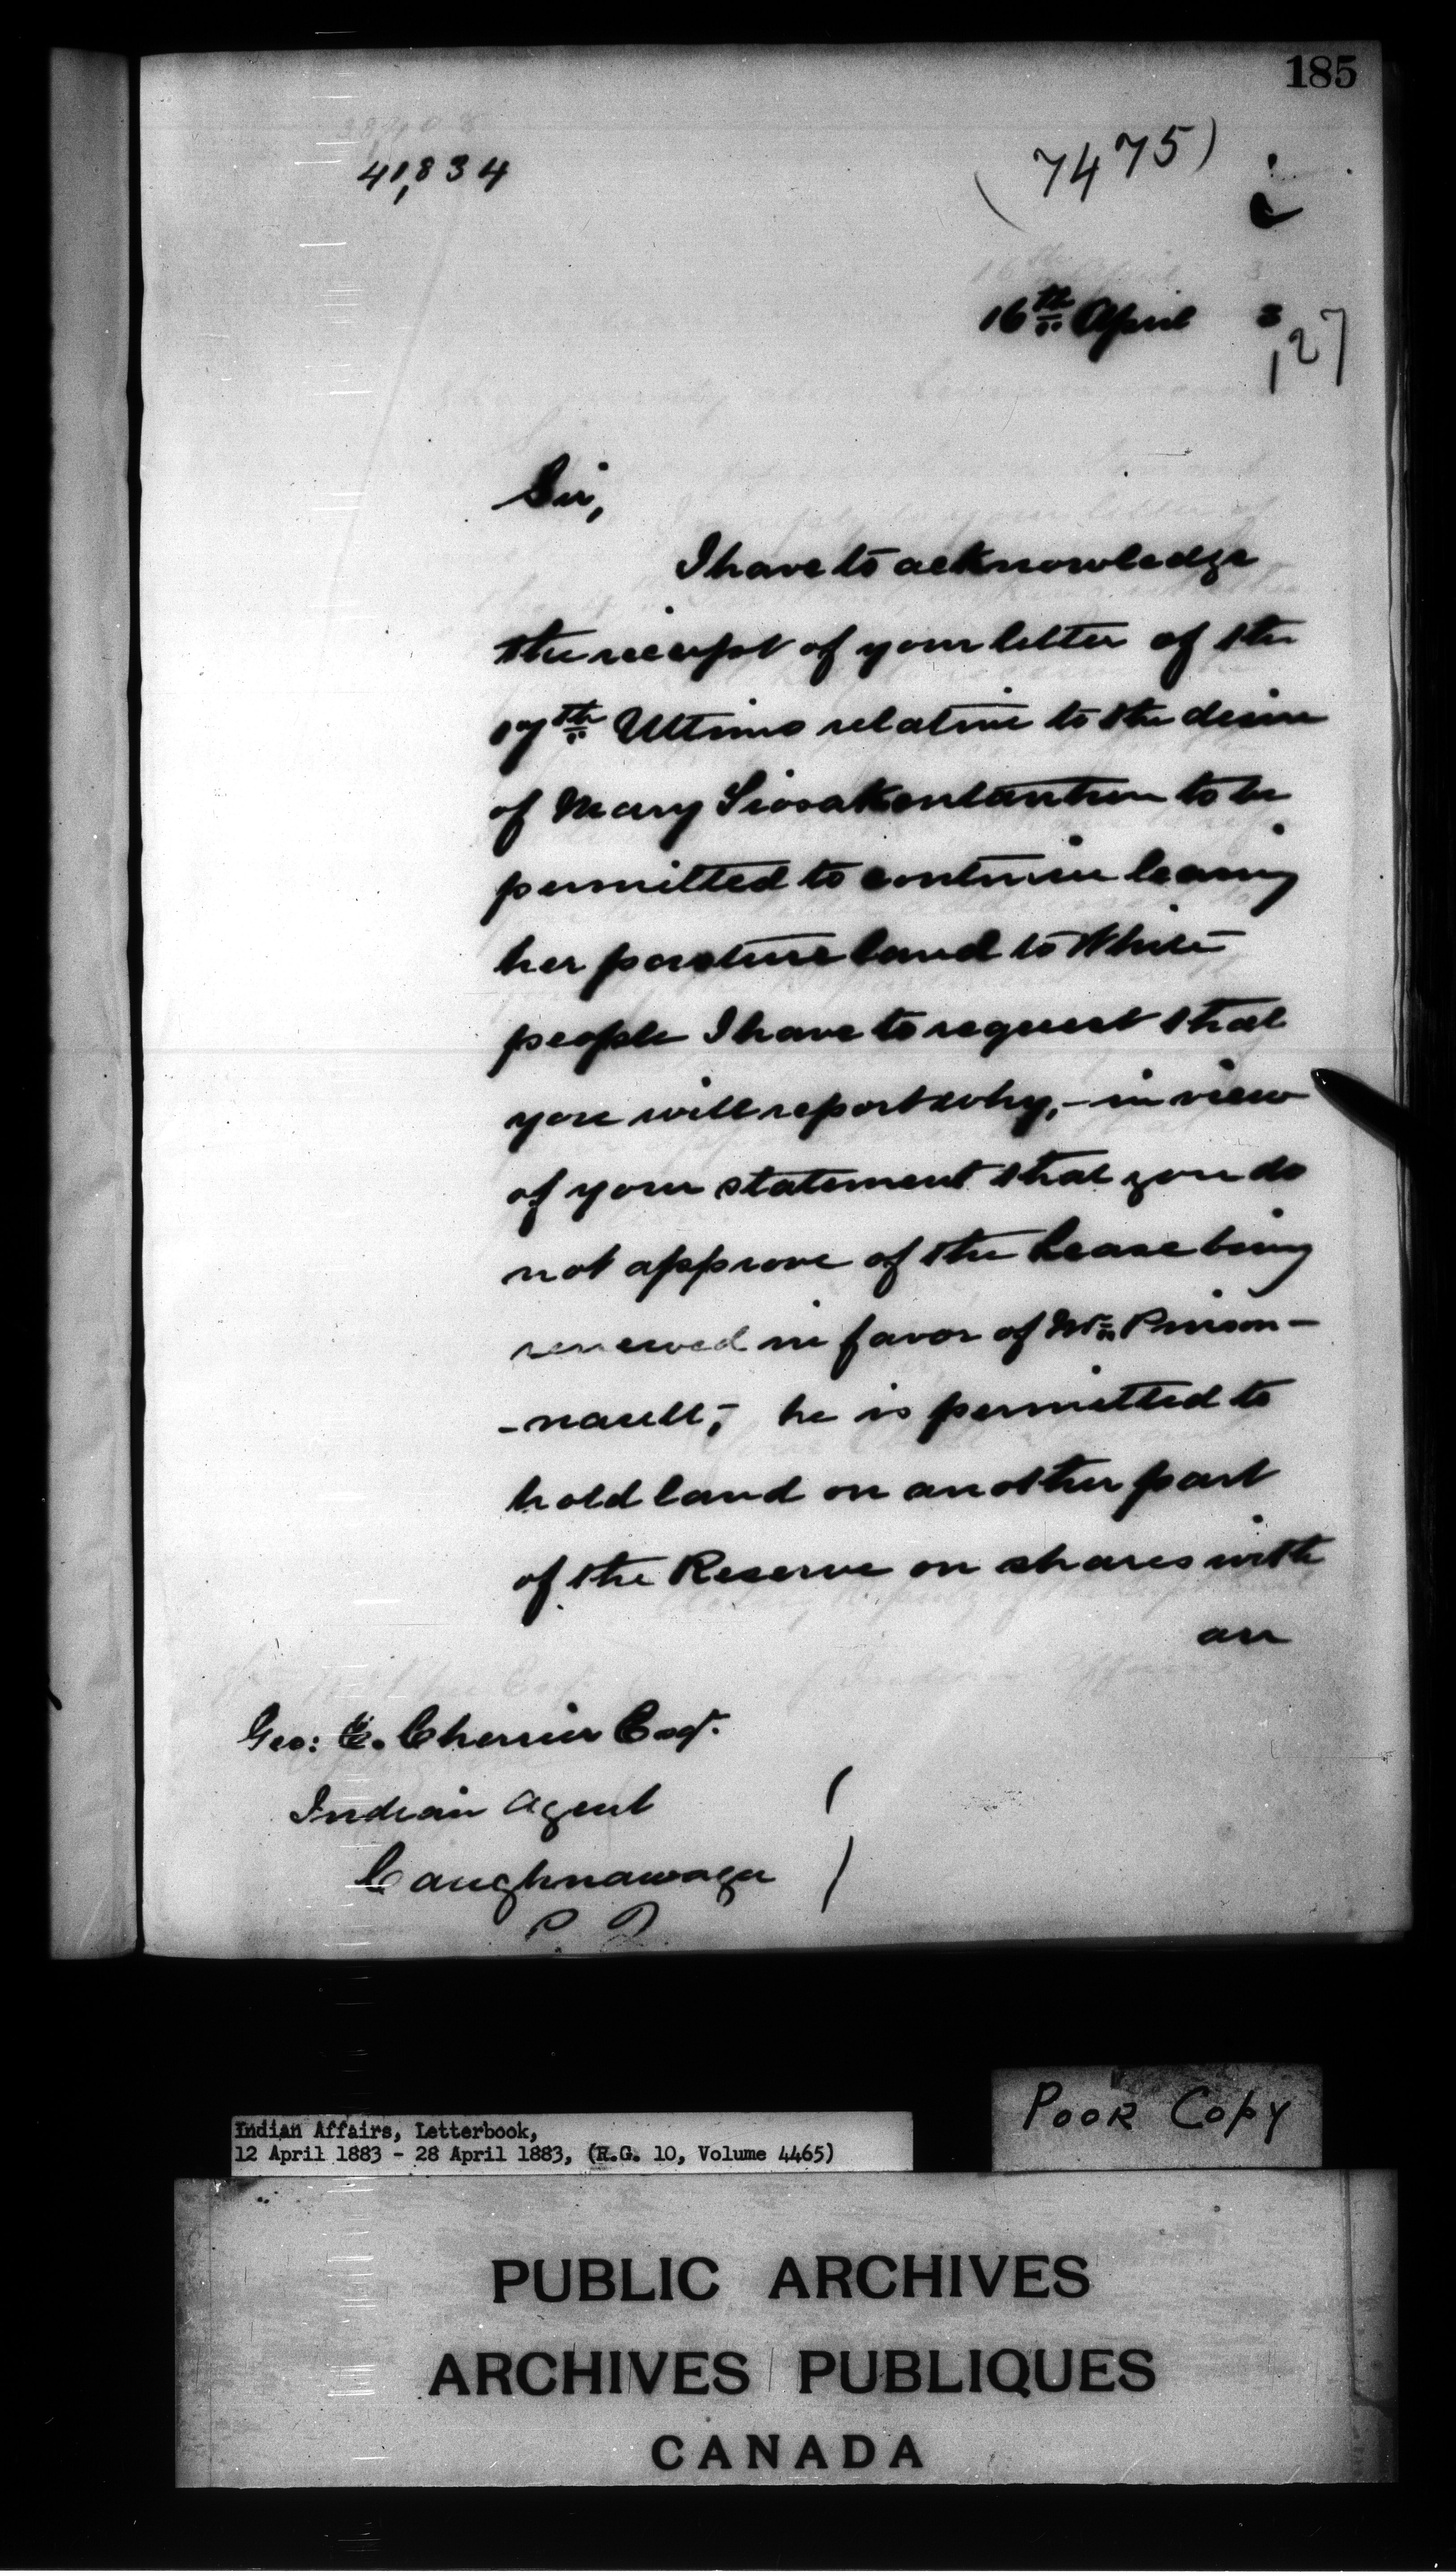 185
41,834
(7475)
16th April 3
127
Sir,
I have to acknowledge
the receipt of your letter of the
17th Ultimo relative to the desire
of Mary
to be
permitted to continue leasing
her pasture land to White
people I have to request that
you will report why,- in view
of your statement that you do
not approve of the Lease being
renewed in favor of Wm Pinson-
-nault,- he is permitted to
hold land on another part
of the Reserve on shares with
an
Geo: E. Cherrier Esqr.
Indian Agent
Caughnawaga
P Q
Poor Copy
Indian Affairs, Letterbook,
12 April 1883 - 28 April 1883, (R.G. 10, Volume 4465)
PUBLIC ARCHIVES
ARCHIVES PUBLIQUES
CANADA